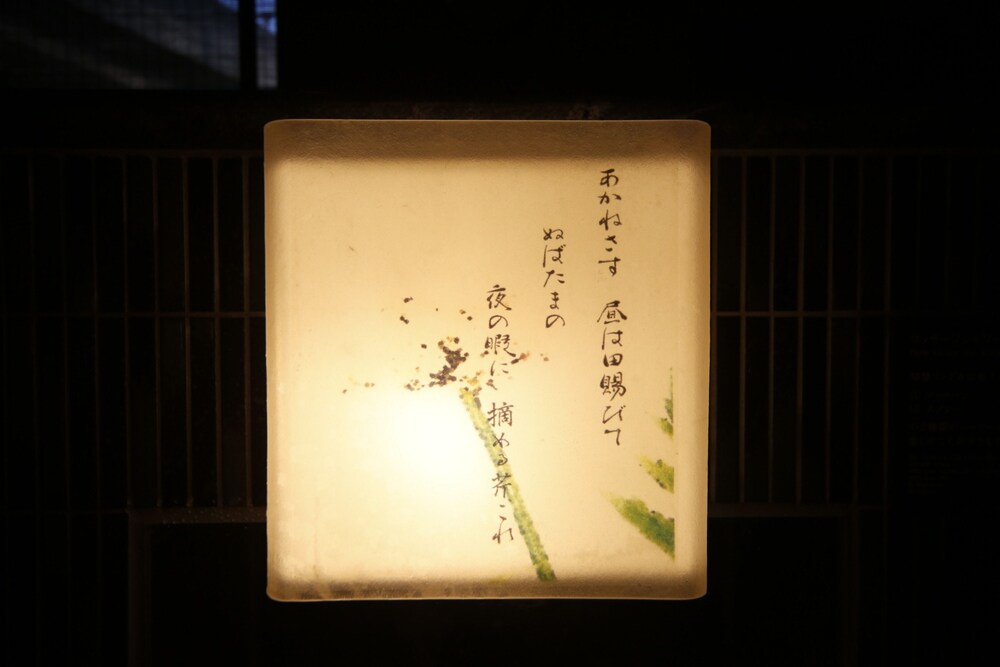 あかねさす 昼は田賜びて
ぬばたまの
夜の暇に 摘める芹これ